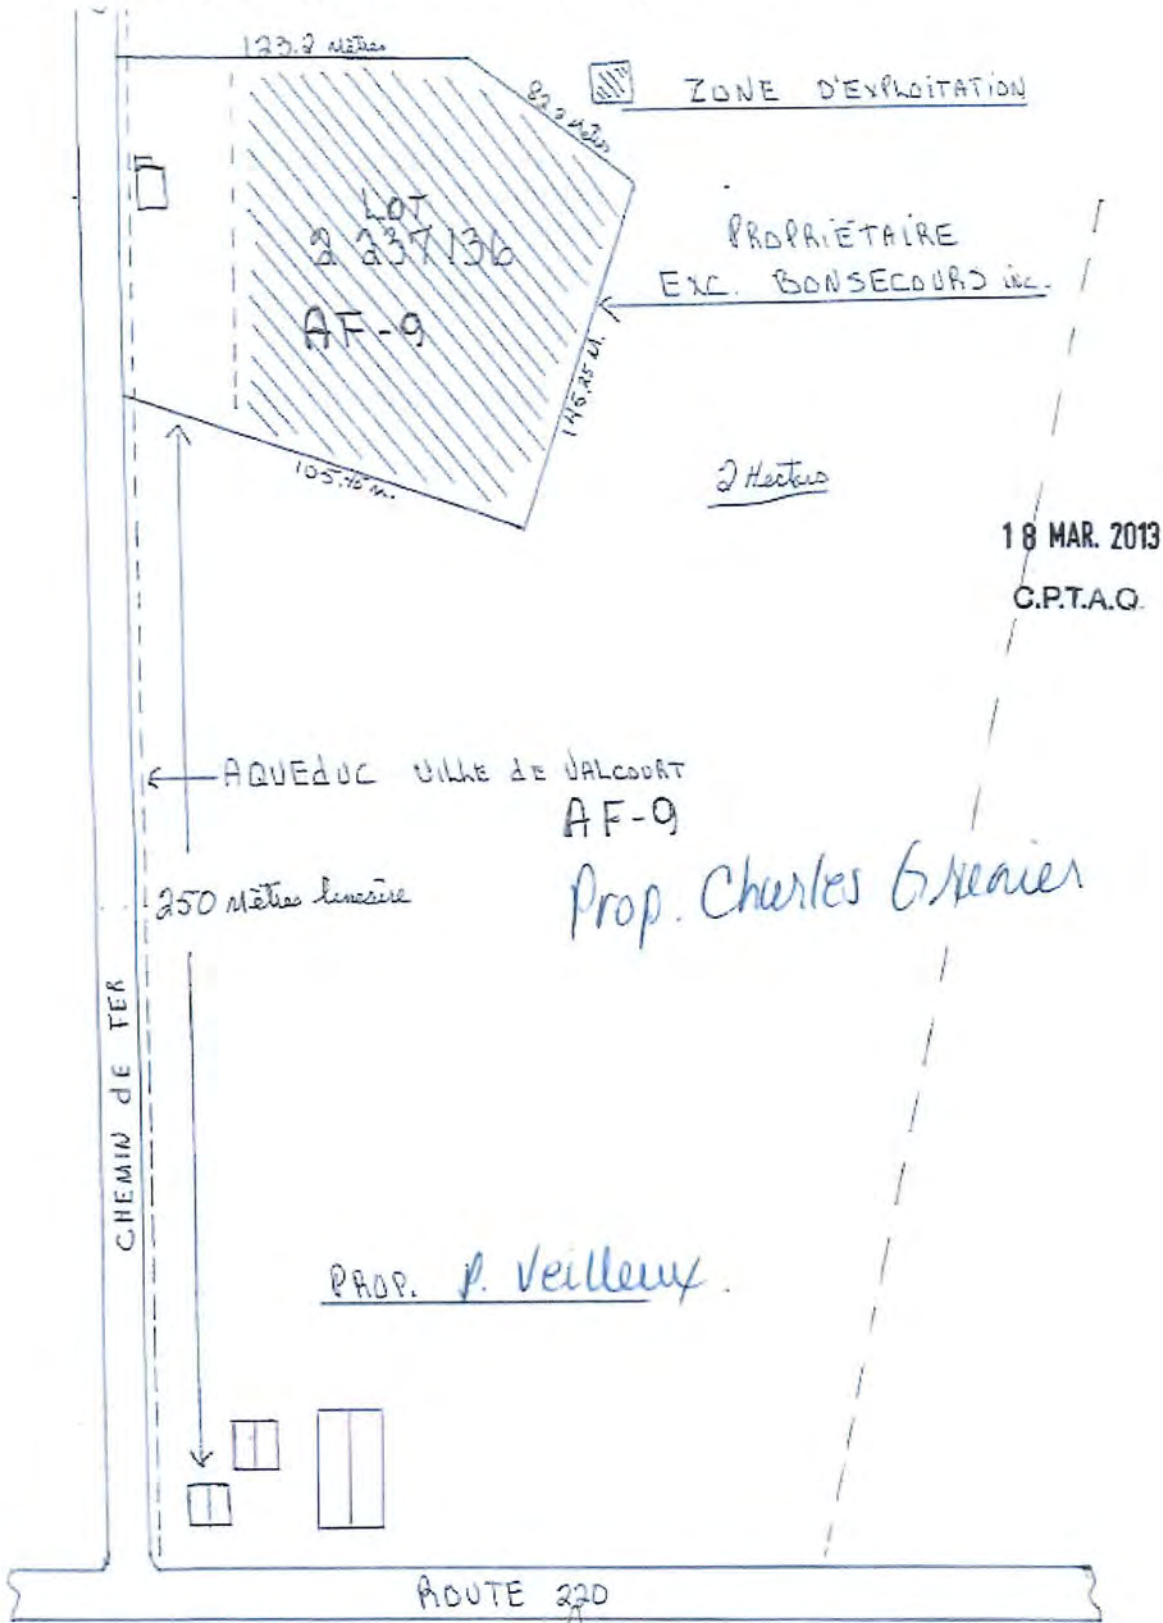 123.2 Mètres
82.2 Mètres
ZONE D'EXPLOITATION
LOT
2 237 136
AF-9
PROPRIÉTAIRE
EXC. BONSECOURS inc.
145.25 M.
105.45 m.
2 Hectares
18 MAR. 2013
C.P.T.A.Q.
AQUEdUC VILLE dE VALCOURT
AF-9
Prop. Charles Grenier
250 Mètres lineaire
CHEMIN dE FER
PROP. P. Veilleux.
ROUTE 220